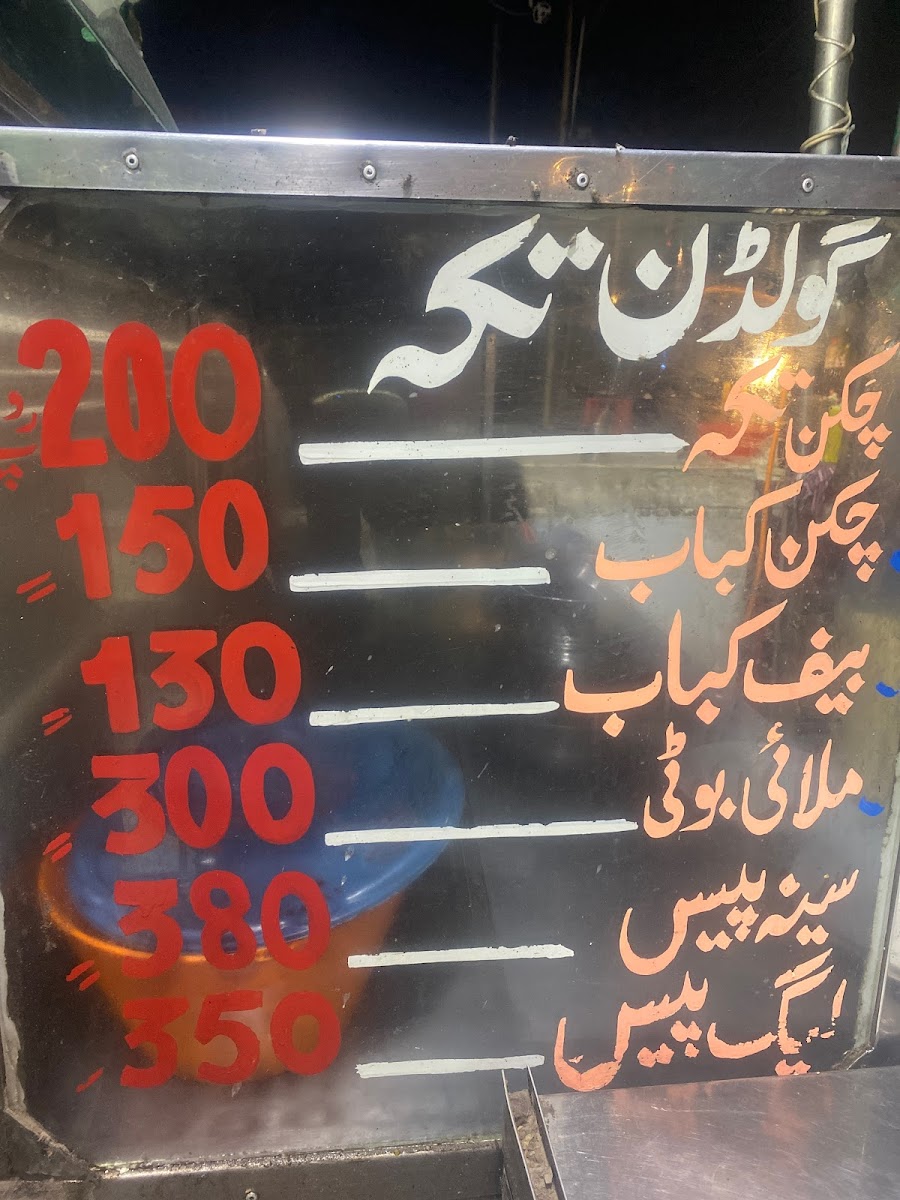 گولڈن تکہ
چکن تکہ 200 روپے
چکن کباب 150 〃
بیف کباب 130 〃
ملائی بوٹی 300 〃
سینہ پیس 380 〃
لیگ پیس 350 〃